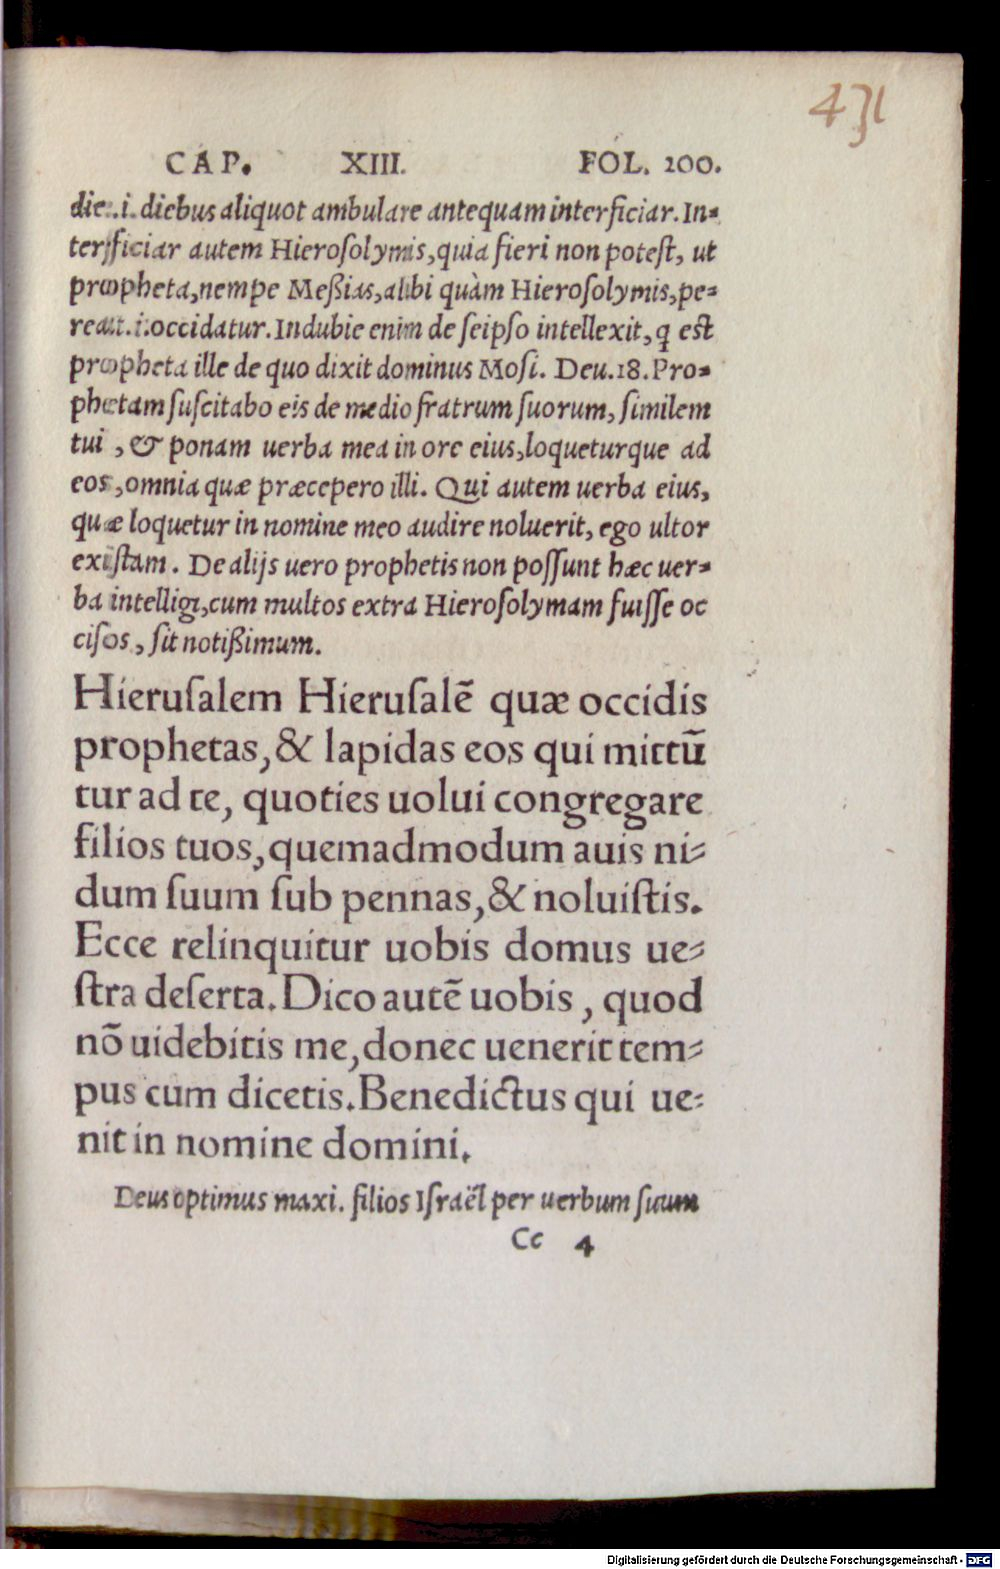 431
CAP. XIII. FOL. 200.
die .i. diebus aliquot ambulare antequam interficiar. In-
terficiar autem Hierosolymis, quia fieri non potest, ut
propheta, nempe Meßias, alibi quàm Hierosolymis, pe-
reat .i. occidatur. Indubie enim de seipso intellexit, q est
propheta ille de quo dixit dominus Mosi. Deu. 18. Pro-
phetam suscitabo eis de medio fratrum suorum, similem
tui , & ponam uerba mea in ore eius, loqueturque ad
eos, omnia quæ præcepero illi. Qui autem uerba eius,
quæ loquetur in nomine meo audire noluerit, ego ultor
existam. De alijs uero prophetis non possunt hæc uer-
ba intelligi, cum multos extra Hierosolymam fuisse oc
cisos, sit notißimum.
Hierusalem Hierusalē quæ occidis
prophetas, & lapidas eos qui mittū
tur ad te, quoties uolui congregare
filios tuos, quemadmodum auis ni-
dum suum sub pennas, & noluistis.
Ecce relinquitur uobis domus ue-
stra deserta. Dico autē uobis , quod
nō uidebitis me, donec uenerit tem-
pus cum dicetis. Benedictus qui ue-
nit in nomine domini.
Deus optimus maxi. filios Israël per uerbum suum
Cc 4
Digitalisierung gefördert durch die Deutsche Forschungsgemeinschaft - DFG